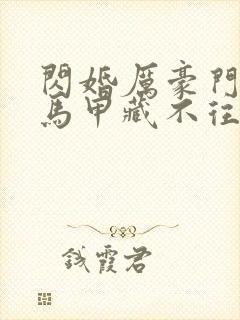 閃婚厲豪門
馬甲藏不往
錢霞君